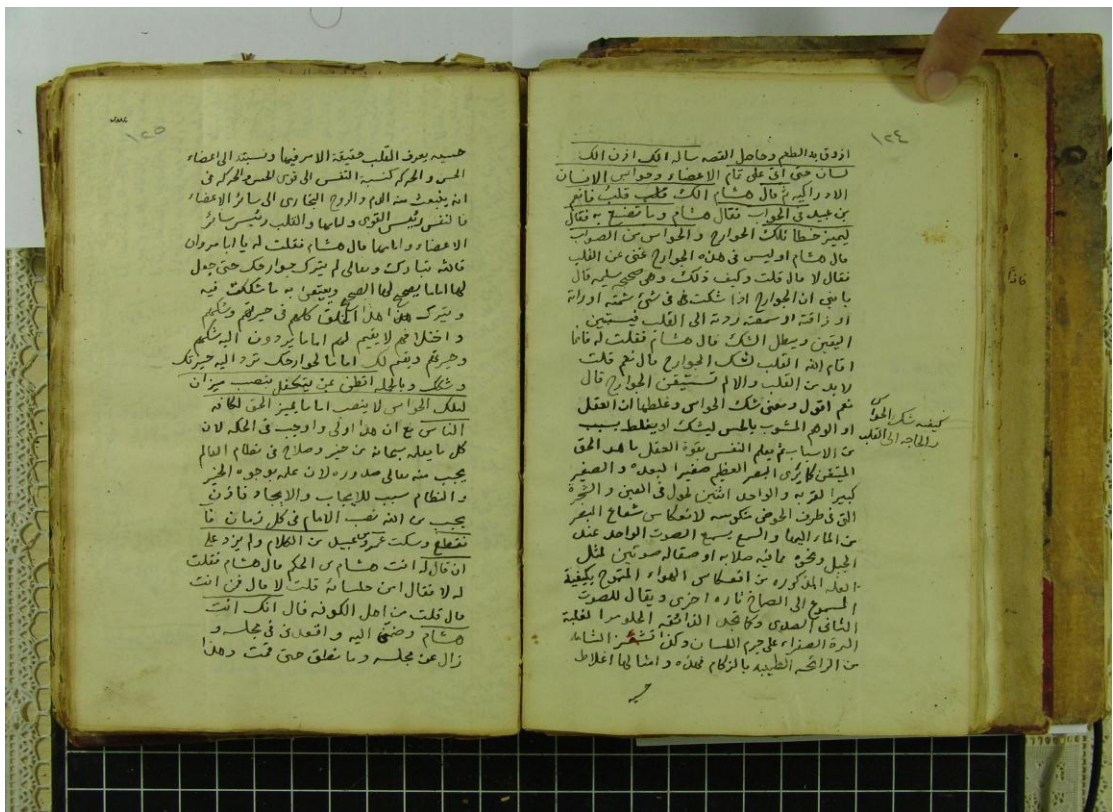 ١٢٤
اذوق به الطعم وحاصل القصه ساله انك اذن الك
لسان حتى اتى على تمام الاعضاء وحواس الانسان
الادراكيه ثم قال هشام الك قلب قلت فانعم
بن عبيد في الجواب فقال هشام وما تصنع به فقال
ليميز خطا تلك الجوارح والحواس من الصواب
قال هشام اوليس في هذه الجوارح غنى عن القلب
فقال لا قال قلت وكيف ذلك وهى صحيحه سليمه قال
يا بنى ان الجوارح اذا شكت في شئ شمته او راته
او ذاقته او سمعته ردته الى القلب فيستيقن
اليقين ويبطل الشك قال هشام فقلت له فانما
اقام الله القلب لشك الجوارح قال نعم قلت
لا بد من القلب والا لم تستيقن الجوارح قال
نعم اقول ومعنى شك الحواس وغلطها ان العقل
او الوهم المشوب بالحس ليشك او يغلط بسبب
من الاسباب ثم يعلم النفس بقوة العقل ما هو الحق
المتيقن كما يرى البصر العظيم صغيرا لبعده والصغير
كبيرا لقربه والواحد اثنين لحول في العين والشجرة
التى في طرف الحوض منكوسه لانعكاس شعاع البصر
من الماء اليها والسمع يسمع الصوت الواحد عند
الجبل ونحوه مما فيه صلابه او صقاله صوتين لمثل
العله المذكوره من انعكاس الهواء المتموج بكيفية
المسموع الى الصماخ تاره اخرى ويقال للصوت
الثانى الصدى وكما تجد الذائقه الحلو مرا لغلبة
المرة الصفراء على جرم اللسان وكذا تشمئز الشامه
من الرائحه الطيبه بالزكام فهذه وامثالها اغلاط
كيفيه شك الحواس
والحاجه الى القلب
١٢٥
حسيه يعرف القلب حقيقة الامر فيها ونسبته الى اعضاء
الحس والحركه كنسبة النفس الى قوى الحس والحركه في
انه ينبعث منه الدم والروح البخارى الى سائر الاعضاء
فالنفس رئيس القوى وامامها والقلب رئيس سائر
الاعضاء وامامها قال هشام فقلت له يا ابا مروان
فالله تبارك وتعالى لم يترك جوارحك حتى جعل
لها اماما يصحح لها الصحيح ويتيقن به ما شككت فيه
ويترك هذا الخلق كلهم في حيرتهم وشكهم
واختلافهم لا يقيم لهم اماما يردون اليه شكهم
وحيرتهم ويقيم لك اماما لجوارحك ترد اليه حيرتك
وشكك وبالجمله افظن من يتكفل بنصب ميزان
لتلك الحواس لا ينصب اماما يميز الحق لكافه
الناس مع ان هذا اولى واوجب في الحكمه لان
كل ما يعلمه سبحانه من خير وصلاح في نظام العالم
يجب منه تعالى صدوره لان علمه بوجوه الخير
والنظام سبب للايجاب والايجاد فاذن
يجب من الله نصب الامام في كل زمان فا
نقطع وسكت عمرو بن عبيد من الكلام ولم يزد على
ان قال له انت هشام بن الحكم قال هشام فقلت
له لا فقال امن جلسائه قلت لا قال فمن انت
قال قلت من اهل الكوفه قال انك انت
هشام وضمنى اليه واقعدنى في مجلسه و
زال عن مجلسه وما نطق حتى قمت وهذا